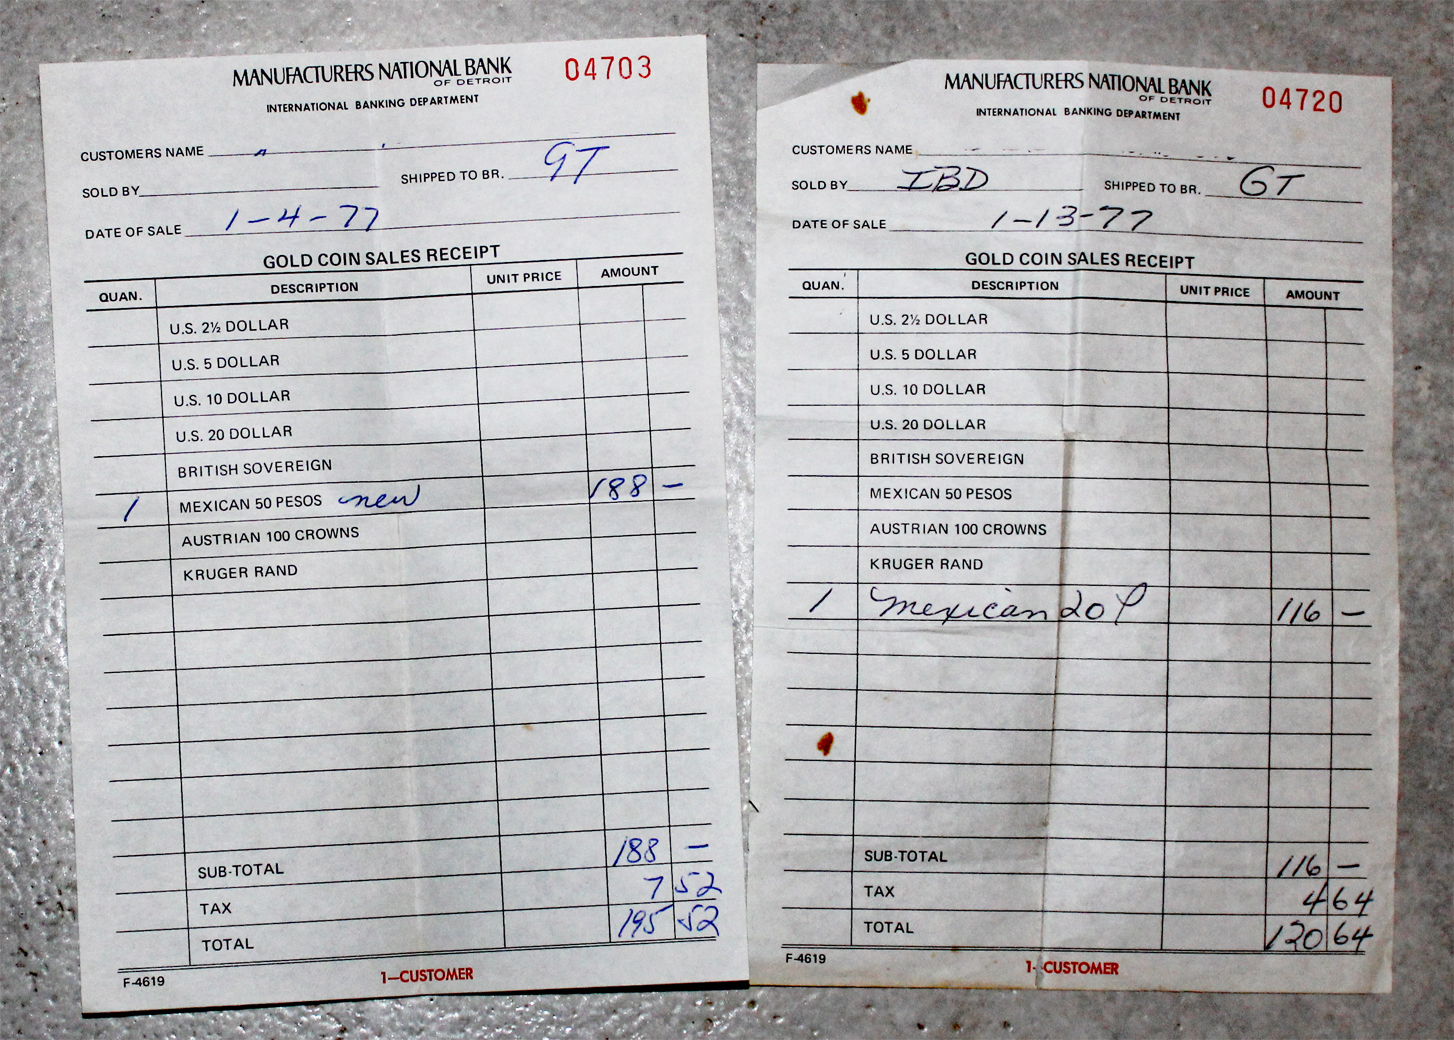 MANUFACTURERS NATIONAL BANK
OF DETROIT
04703
INTERNATIONAL BANKING DEPARTMENT
CUSTOMERS NAME
SOLD BY SHIPPED TO BR. GT
DATE OF SALE 1-4-77
GOLD COIN SALES RECEIPT
QUAN. DESCRIPTION UNIT PRICE AMOUNT
U.S. 2½ DOLLAR
U.S. 5 DOLLAR
U.S. 10 DOLLAR
U.S. 20 DOLLAR
BRITISH SOVEREIGN
1 MEXICAN 50 PESOS new 188 —
AUSTRIAN 100 CROWNS
KRUGER RAND
SUB-TOTAL 188 —
TAX 7 52
TOTAL 195 52
F-4619 1—CUSTOMER
MANUFACTURERS NATIONAL BANK
OF DETROIT
04720
INTERNATIONAL BANKING DEPARTMENT
CUSTOMERS NAME
SOLD BY IBD SHIPPED TO BR. GT
DATE OF SALE 1-13-77
GOLD COIN SALES RECEIPT
QUAN. DESCRIPTION UNIT PRICE AMOUNT
U.S. 2½ DOLLAR
U.S. 5 DOLLAR
U.S. 10 DOLLAR
U.S. 20 DOLLAR
BRITISH SOVEREIGN
MEXICAN 50 PESOS
AUSTRIAN 100 CROWNS
KRUGER RAND
1 Mexican 20 P 116 —
SUB-TOTAL 116 —
TAX 4 64
TOTAL 120 64
F-4619 1-CUSTOMER